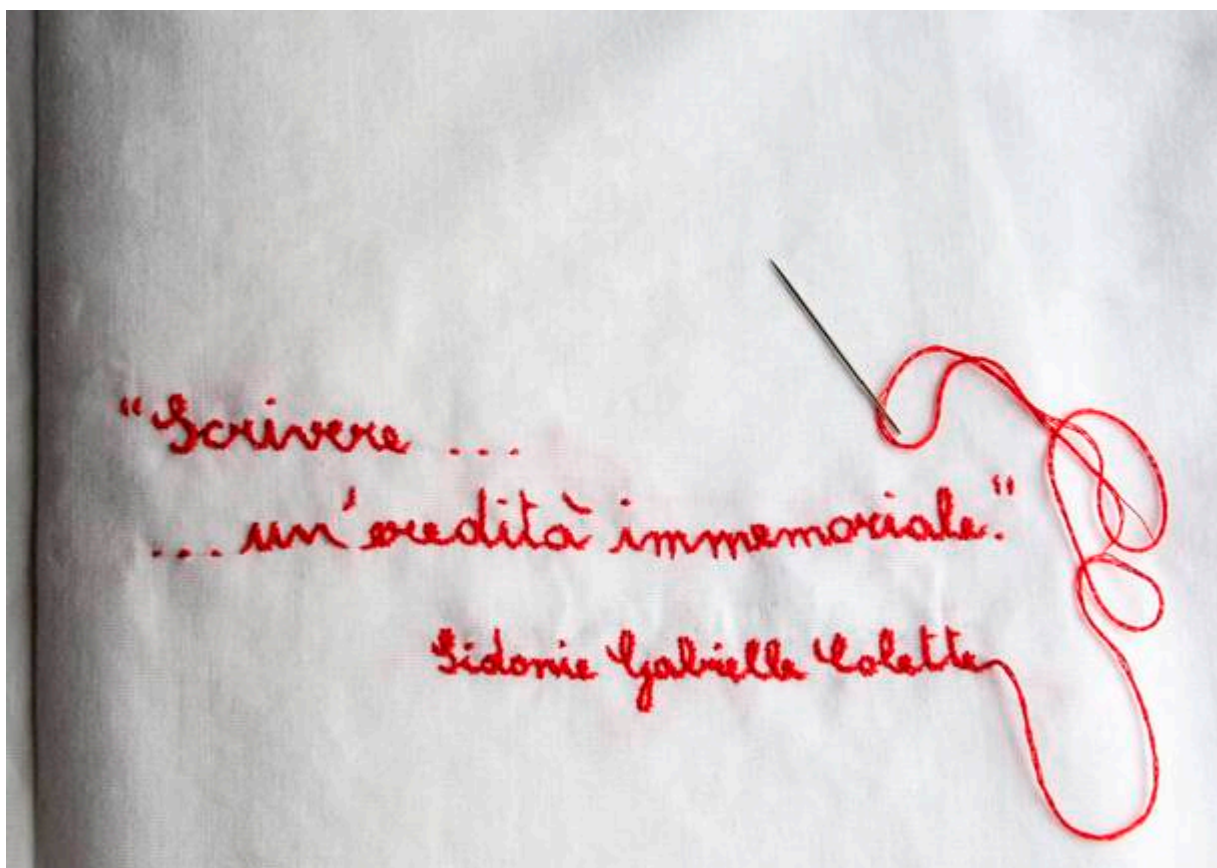 “Scrivere ...
... un'eredità immemoriale."
Sidonie Gabrielle Colette